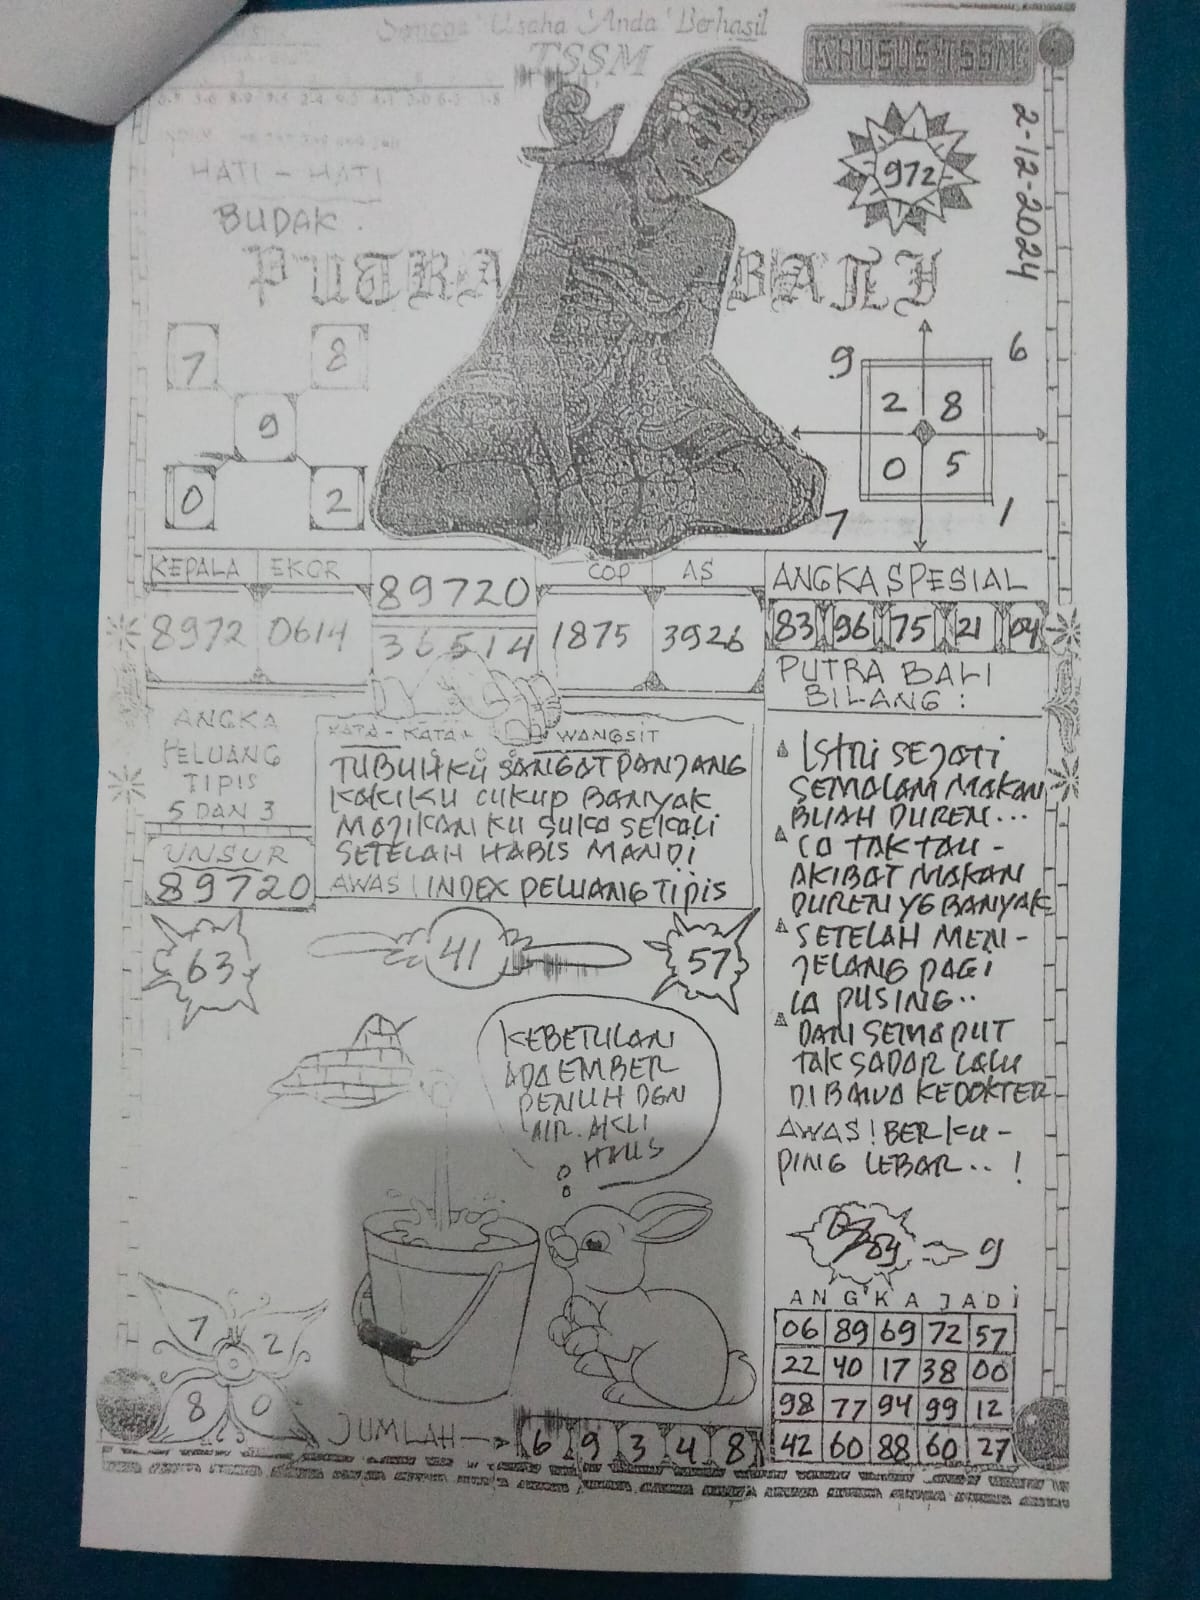 Semoga Usaha Anda Berhasil
TSSM
KHUSUS TSSM
2-12-2024
972
HATI - HATI
BUDAK.
PUTRA BALI
7 8
9
0 2
9 6
2 8
0 5
7 1
KEPALA EKOR
8972 0614
89720
36514
COP AS
1875 3926
ANGKA SPESIAL
83 96 75 21 04
ANGKA
PELUANG
TIPIS
5 DAN 3
UNSUR
89720
KATA - KATA WANGSIT
TUBUHKU SANGAT PANJANG
KAKIKU CUKUP BANYAK
MAJIKAN KU SUKA SEKALI
SETELAH HABIS MANDI
AWAS! INDEX PELUANG TIPIS
PUTRA BALI
BILANG :
ISTRI SEJATI
SEMALAM MAKAN
BUAH DUREN...
IA TAK TAU -
AKIBAT MAKAN
DUREN YG BANYAK
SETELAH MEN -
JELANG PAGI
IA PUSING..
DAN SEMAPUT
TAK SADAR LALU
DI BAWA KEDOKTER
AWAS! BER KU -
PING LEBAR.. !
63
41
57
KEBETULAN
ADA EMBER
PENUH DGN
AIR. AKU
HAUS
9
ANGKA JADI
06 89 69 72 57
22 40 17 38 00
98 77 94 99 12
42 60 88 60 27
7 2
8 0
JUMLAH
6 9 3 4 8